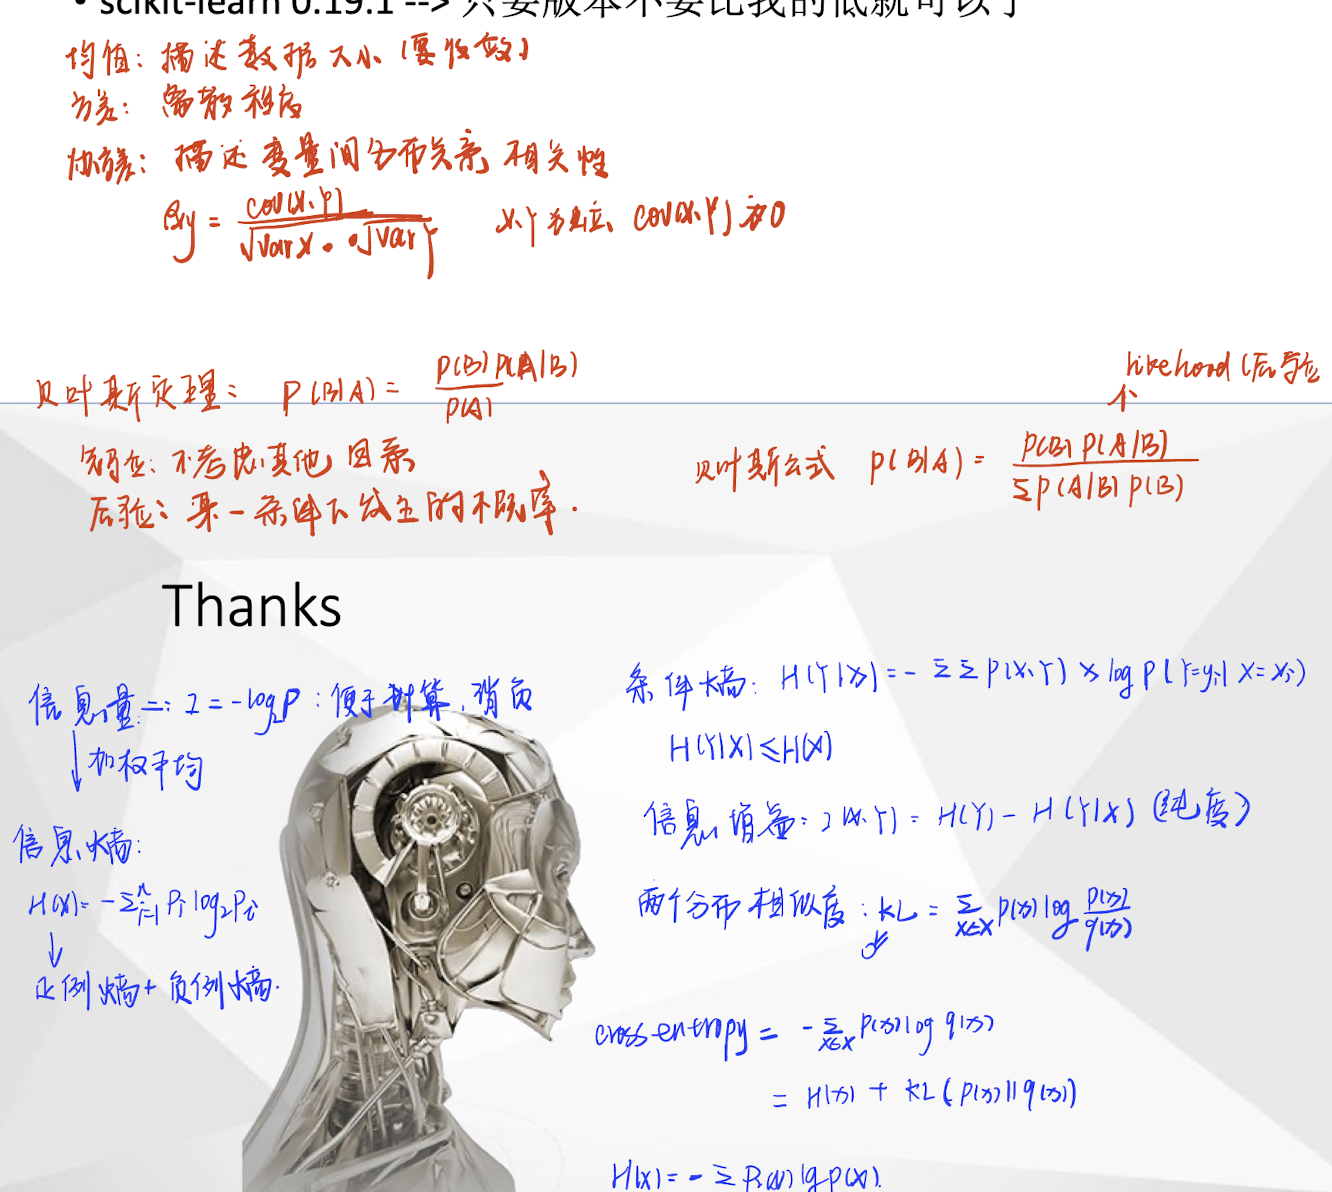 • scikit-learn 0.19.1 --> 只要版本不要比我的低就可以了
均值: 描述数据大小 (要收敛)
方差: 离散程度
协方差: 描述变量间分布关系, 相关性
ρxy = cov(x,y) / √varX · √varY    x,Y独立, cov(x,Y)为0
likehood (后验
↑
贝叶斯定理: P(B|A) = P(B)P(A|B) / P(A)
先验: 不考虑其他因素
贝叶斯公式 P(B|A) = P(B)P(A|B) / ΣP(A|B)P(B)
后验: 某一条件下发生的概率.
Thanks
信息量: I = -log₂P : 便于计算, 消负
↓ 加权平均
信息熵:
H(X) = -Σⁿᵢ₌₁ Pᵢ log₂Pᵢ
↓
正例熵 + 负例熵.
条件熵: H(Y|X) = -ΣΣP(X,Y) × log P(Y=yᵢ|X=xᵢ)
H(Y|X) ≤ H(X)
信息增益: I(X,Y) = H(Y) - H(Y|X) (纯度)
两个分布相似度: KL = Σx∈X P(x) log P(x)/q(x)
cross entropy = -Σx∈X P(x) log q(x)
= H(x) + KL(P(x)||q(x))
H(x) = -ΣPᵢ(x) lg p(x).